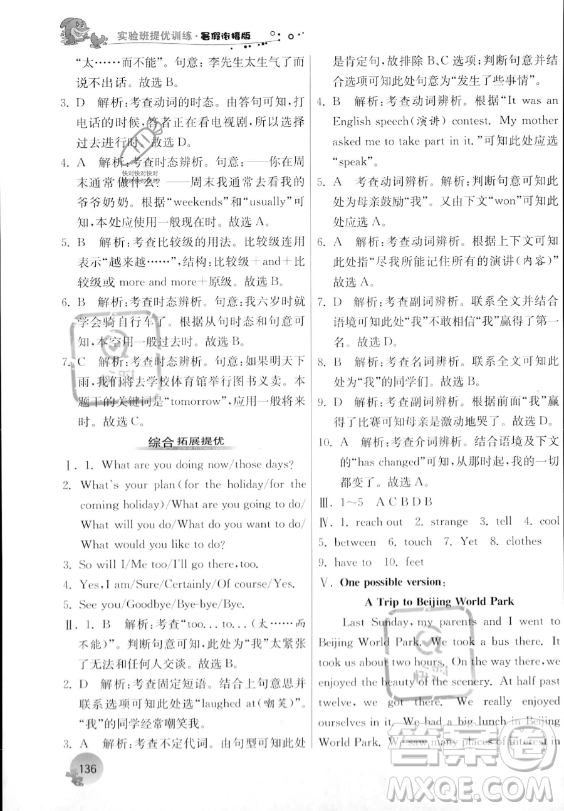 实验班提优训练·暑假衔接版
“太……而不能”。句意：李先生太生气了
而说不出话。故选B。
3. D 解析：考查动词的时态。由答句可知，打
电话的时候，答者正在看电视剧，所以选
过去进行时。故选D。
4. A 解析：考查时态辨析。句意：——你在周
末通常做什么？——周末我通常去看望我的
爷爷奶奶。根据“weekends”和“usually”可
知，本处应用一般现在时。故选A。
5. B 解析：考查比较级的用法。比较级连用
表示“越来越……”，结构为：比较级+and+比
较级或more and more+原级。故选B。
6. B 解析：考查时态辨析。句意：我六岁时就
学会骑自行车了。根据从句动词时态可
知，本空用一般过去时。故选B。
7. C 解析：考查时态辨析。句意：如果明天下
雨，我们将去学校体育馆举行图书义卖。本
题干的关键词是“tomorrow”，应用一般将来
时。故选C。
综合拓展提优
Ⅰ. 1. What are you doing now/those days?
2. What's your plan(for the holiday/for the
coming holiday)/What are you going to do/
What will you do/What do you want to do/
What would you like to do?
3. So will I/Me too/I'll go there, too.
4. Yes,I am/Sure/Certainly/Of course/Yes.
5. See you/Goodbye/Bye-bye/Bye.
Ⅱ. 1. B 解析：考查“too...to...(太……而
不能)”。判断句意可知此处为“我”太紧张
了无法与任何人交谈。故选B。
2. D 解析：考查固定短语。结合上句意思并
联系选项可知此处为“laughed at(嘲笑)”。
“我”的同学经常嘲笑我。
3. A 解析：考查不定代词。由句型可知此处
是肯定句，故排除C、D选项；判断句意并
结合选项可知此处句意为“发生了些事情”。
4. B 解析：考查动词辨析。根据“It was an
English speech(演讲) contest. My mother
asked me to take part in it.”可知此处应选
“speak”。
5. A 解析：考查动词辨析。判断句意可知此
处为母亲鼓励“我”。又由下文“won”可知
选A。
6. B 解析：考查动词辨析。根据句意可知此
处指“尽我所能记住所有的演讲(内容)”。
故选B。
7. D 解析：考查副词辨析。联系全文并结合
语境可知此处“我”平静而又成功地做到了。
故选D。
8. B 解析：考查名词辨析。联系全文可知此
处为“我”的同学们。故选B。
9. D 解析：考查副词辨析。根据前面“我”赢
得了比赛可知母亲是激动地哭了。故选D。
10. A 解析：结合语境及下文中的
“has changed”可知，“我”的一切
都变了。故选A。
Ⅲ. 1～5 ACBDB
Ⅳ. 1. reach out 2. strange 3. tell 4. cool
5. between 6. touch 7. Yet 8. clothes
9. have to 10. feet
Ⅴ. One possible version:
A Trip to Beijing World Park
Last Sunday, my parents and I went to
Beijing World Park. We took a bus there. It
took us about two hours. On the way, we
enjoyed the beauty of the scenery. At half past
twelve, we got there. We really enjoyed
ourselves. We had a big lunch in Beijing
World Park. After lunch, we
136